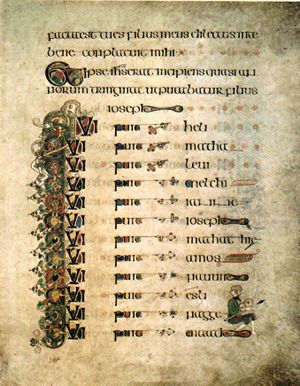 facta est tu es filius meus dilectus in te
bene conplacuit mihi
ipse ihs erat incipiens quasi an
norum triginta ut putabatur filius
ioseph
QUI fuit heli
QUI fuit mathat
QUI fuit leui
QUI fuit melchi
QUI fuit
QUI fuit ioseph
QUI fuit mathathie
QUI fuit amos
QUI fuit nauum
QUI fuit esli
QUI fuit nagge
QUI fuit maath